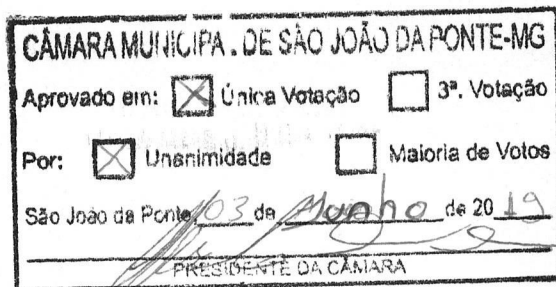 CÂMARA MUNICIPAL DE SÃO JOÃO DA PONTE-MG
Aprovado em: [X] Única Votação [ ] 3ª. Votação
Por: [X] Unanimidade [ ] Maioria de Votos
São João da Ponte, 03 de de 20 19
PRESIDENTE DA CÂMARA